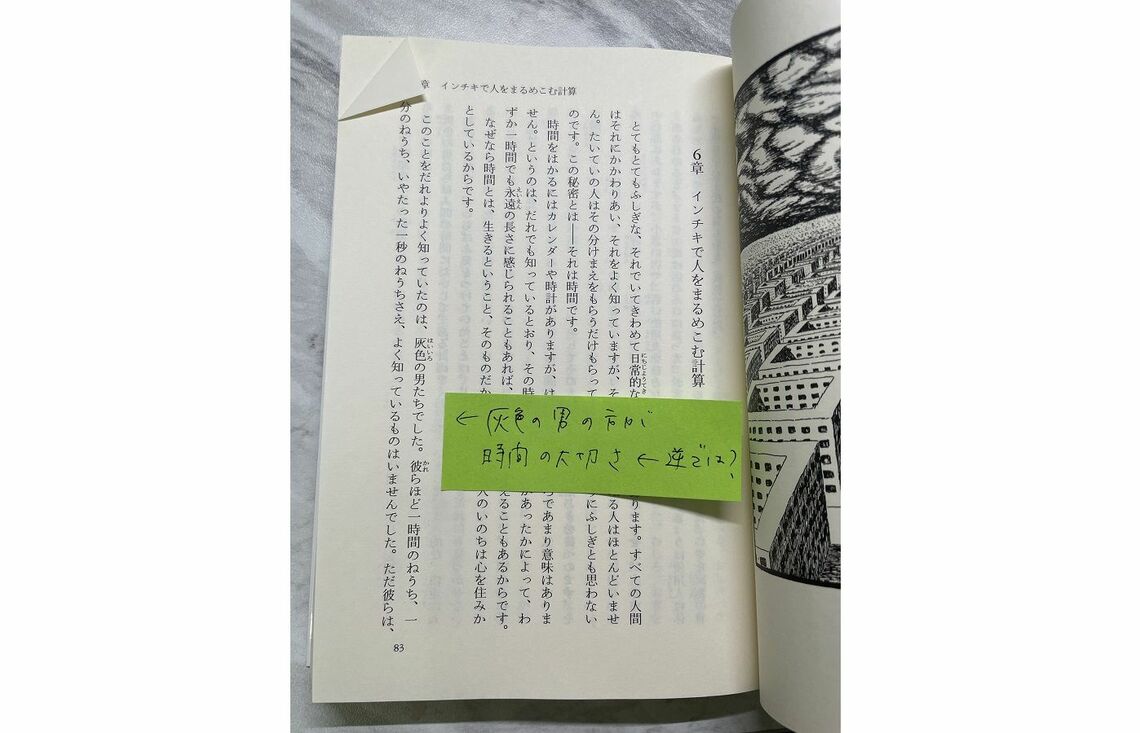 章 インチキで人をまるめこむ計算
6章 インチキで人をまるめこむ計算
とてもとてもふしぎな、それでいてきわめて日常的な ります。すべての人間
はそれにかかわりあい、それをよく知っていますが、そ る人はほとんどいませ
ん。たいていの人はその分けまえをもらうだけもらって にふしぎとも思わない
のです。この秘密とは――それは時間です。
時間をはかるにはカレンダーや時計がありますが、は であまり意味はありま
せん。というのは、だれでも知っているとおり、その時 があったかによって、わ
ずか一時間でも永遠の長さに感じられることもあれば、 えることもあるからです。
なぜなら時間とは、生きるということ、そのものだか 人のいのちは心を住みか
としているからです。
このことをだれよりよく知っていたのは、灰色の男たちでした。彼らほど一時間のねうち、一
分のねうち、いやたった一秒のねうちさえ、よく知っているものはいませんでした。ただ彼らは、
83
←灰色の男の方が
時間の大切さ←逆では?